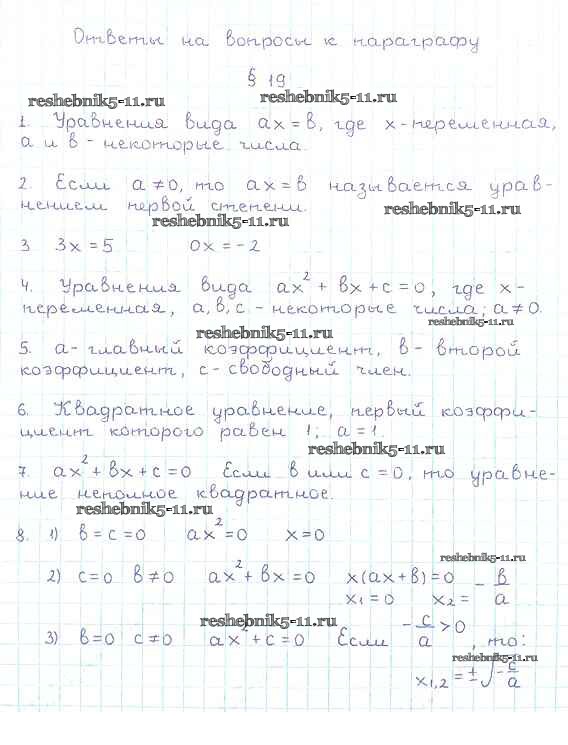 Ответы на вопросы к параграфу
§ 19
reshebnik5-11.ru reshebnik5-11.ru
1. Уравнения вида ax = b, где x - переменная,
a и b - некоторые числа.
2. Если a ≠ 0, то ax = b называется урав-
нением первой степени.
reshebnik5-11.ru reshebnik5-11.ru
3 3x = 5 0x = -2
4. Уравнения вида ax² + bx + c = 0, где x -
переменная, a, b, c - некоторые числа; a ≠ 0.
reshebnik5-11.ru reshebnik5-11.ru
5. a - главный коэффициент, b - второй
коэффициент, c - свободный член.
6. Квадратное уравнение, первый коэффи-
циент которого равен 1; a = 1.
reshebnik5-11.ru
7. ax² + bx + c = 0 Если b или c = 0, то уравне-
ние неполное квадратное.
reshebnik5-11.ru
8. 1) b = c = 0 ax² = 0 x = 0
reshebnik5-11.ru
2) c = 0 b ≠ 0 ax² + bx = 0 x(ax + b) = 0
x₁ = 0 x₂ = - b/a
reshebnik5-11.ru
3) b = 0 c ≠ 0 ax² + c = 0 Если - c/a > 0, то:
reshebnik5-11.ru
x₁,₂ = ± √(- c/a)